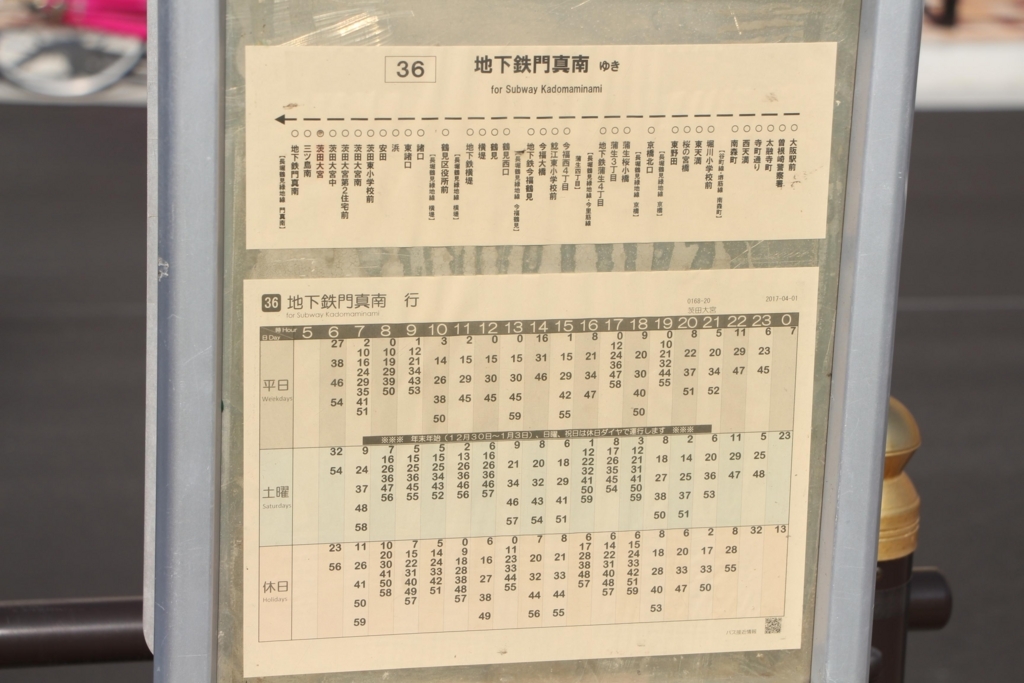 36 地下鉄門真南 ゆき
for Subway Kadomaminami
大阪駅前
曽根崎警察署
太融寺町
寺町通り
西天満
南森町
［谷町線・堺筋線 南森町］
堀川小学校前
東天満
桜の宮橋
東野田
［長堀鶴見緑地線 京橋］
京橋北口
［長堀鶴見緑地線 京橋］
蒲生桜小橋
蒲生3丁目
地下鉄蒲生4丁目
［長堀鶴見緑地線・今里筋線 蒲生四丁目］
今福西4丁目
鯰江東小学校前
今福大橋
地下鉄今福鶴見
［長堀鶴見緑地線 今福鶴見］
鶴見西口
鶴見
横堤
地下鉄横堤
［長堀鶴見緑地線 横堤］
鶴見区役所前
［長堀鶴見緑地線 横堤］
諸口
東諸口
浜
安田
茨田東小学校前
茨田大宮南
茨田大宮第2住宅前
茨田大宮中
茨田大宮
三ツ島南
地下鉄門真南
［長堀鶴見緑地線 門真南］
36 地下鉄門真南 行
for Subway Kadomaminami
0168-20
茨田大宮
2017-04-01
時 Hour 5 6 7 8 9 10 11 12 13 14 15 16 17 18 19 20 21 22 23 0
日 Day
27 2 0 1 3 2 0 0 16 1 8 0 9 0 8 5 11 6 7
10 10 12 12 10
38 16 19 21 14 15 15 15 31 15 21 24 20 21 22 20 29 23
24 29 34 36 32
平日 46 29 39 43 26 29 30 30 46 29 34 47 30 44 37 34 47 45
Weekdays
35 50 53 58 55
54 41 38 45 45 45 42 47 40 51 52
51 50 59 55 50
※※※ 年末年始(12月30日～1月3日)、日曜、祝日は休日ダイヤで運行します ※※※
32 9 7 5 5 2 6 9 8 6 1 8 3 8 2 6 11 5 23
16 15 15 13 16 12 17 12
54 24 26 25 26 26 26 21 20 18 22 26 21 18 14 20 29 25
36 36 34 36 36 32 35 31
土曜 37 47 45 43 46 46 34 32 29 41 45 41 27 25 36 47 48
Saturdays
56 55 52 56 57 50 54 50
48 46 43 41 59 59 38 37 53
58 57 54 51 50 51
23 11 10 7 5 0 6 0 7 8 6 6 6 8 6 2 8 32 13
20 15 14 9 11 17 14 15
56 26 30 22 24 18 16 23 20 21 28 22 24 18 20 17 28
41 31 33 28 33 38 31 33
休日 41 50 40 42 38 27 44 32 33 48 40 42 28 33 33 55
Holidays
58 49 51 48 55 57 48 51
50 57 57 38 44 44 57 59 40 47 50
59 49 56 55 53